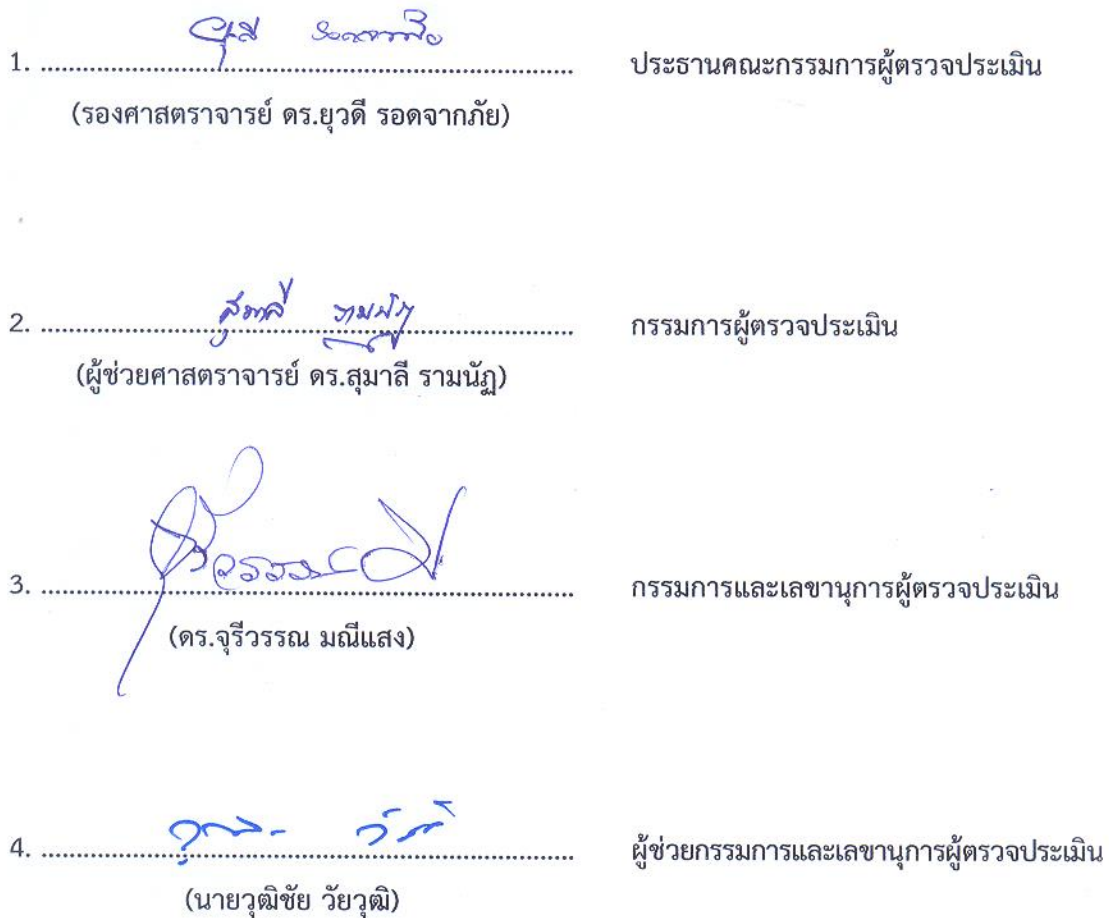 1. ............................................................ ประธานคณะกรรมการผู้ตรวจประเมิน
(รองศาสตราจารย์ ดร.ยุวดี รอดจากภัย)
2. ............................................................ กรรมการผู้ตรวจประเมิน
(ผู้ช่วยศาสตราจารย์ ดร.สุมาลี รามนัฏ)
3. ............................................................ กรรมการและเลขานุการผู้ตรวจประเมิน
(ดร.จุรีวรรณ มณีแสง)
4. ............................................................ ผู้ช่วยกรรมการและเลขานุการผู้ตรวจประเมิน
(นายวุฒิชัย วัยวุฒิ)